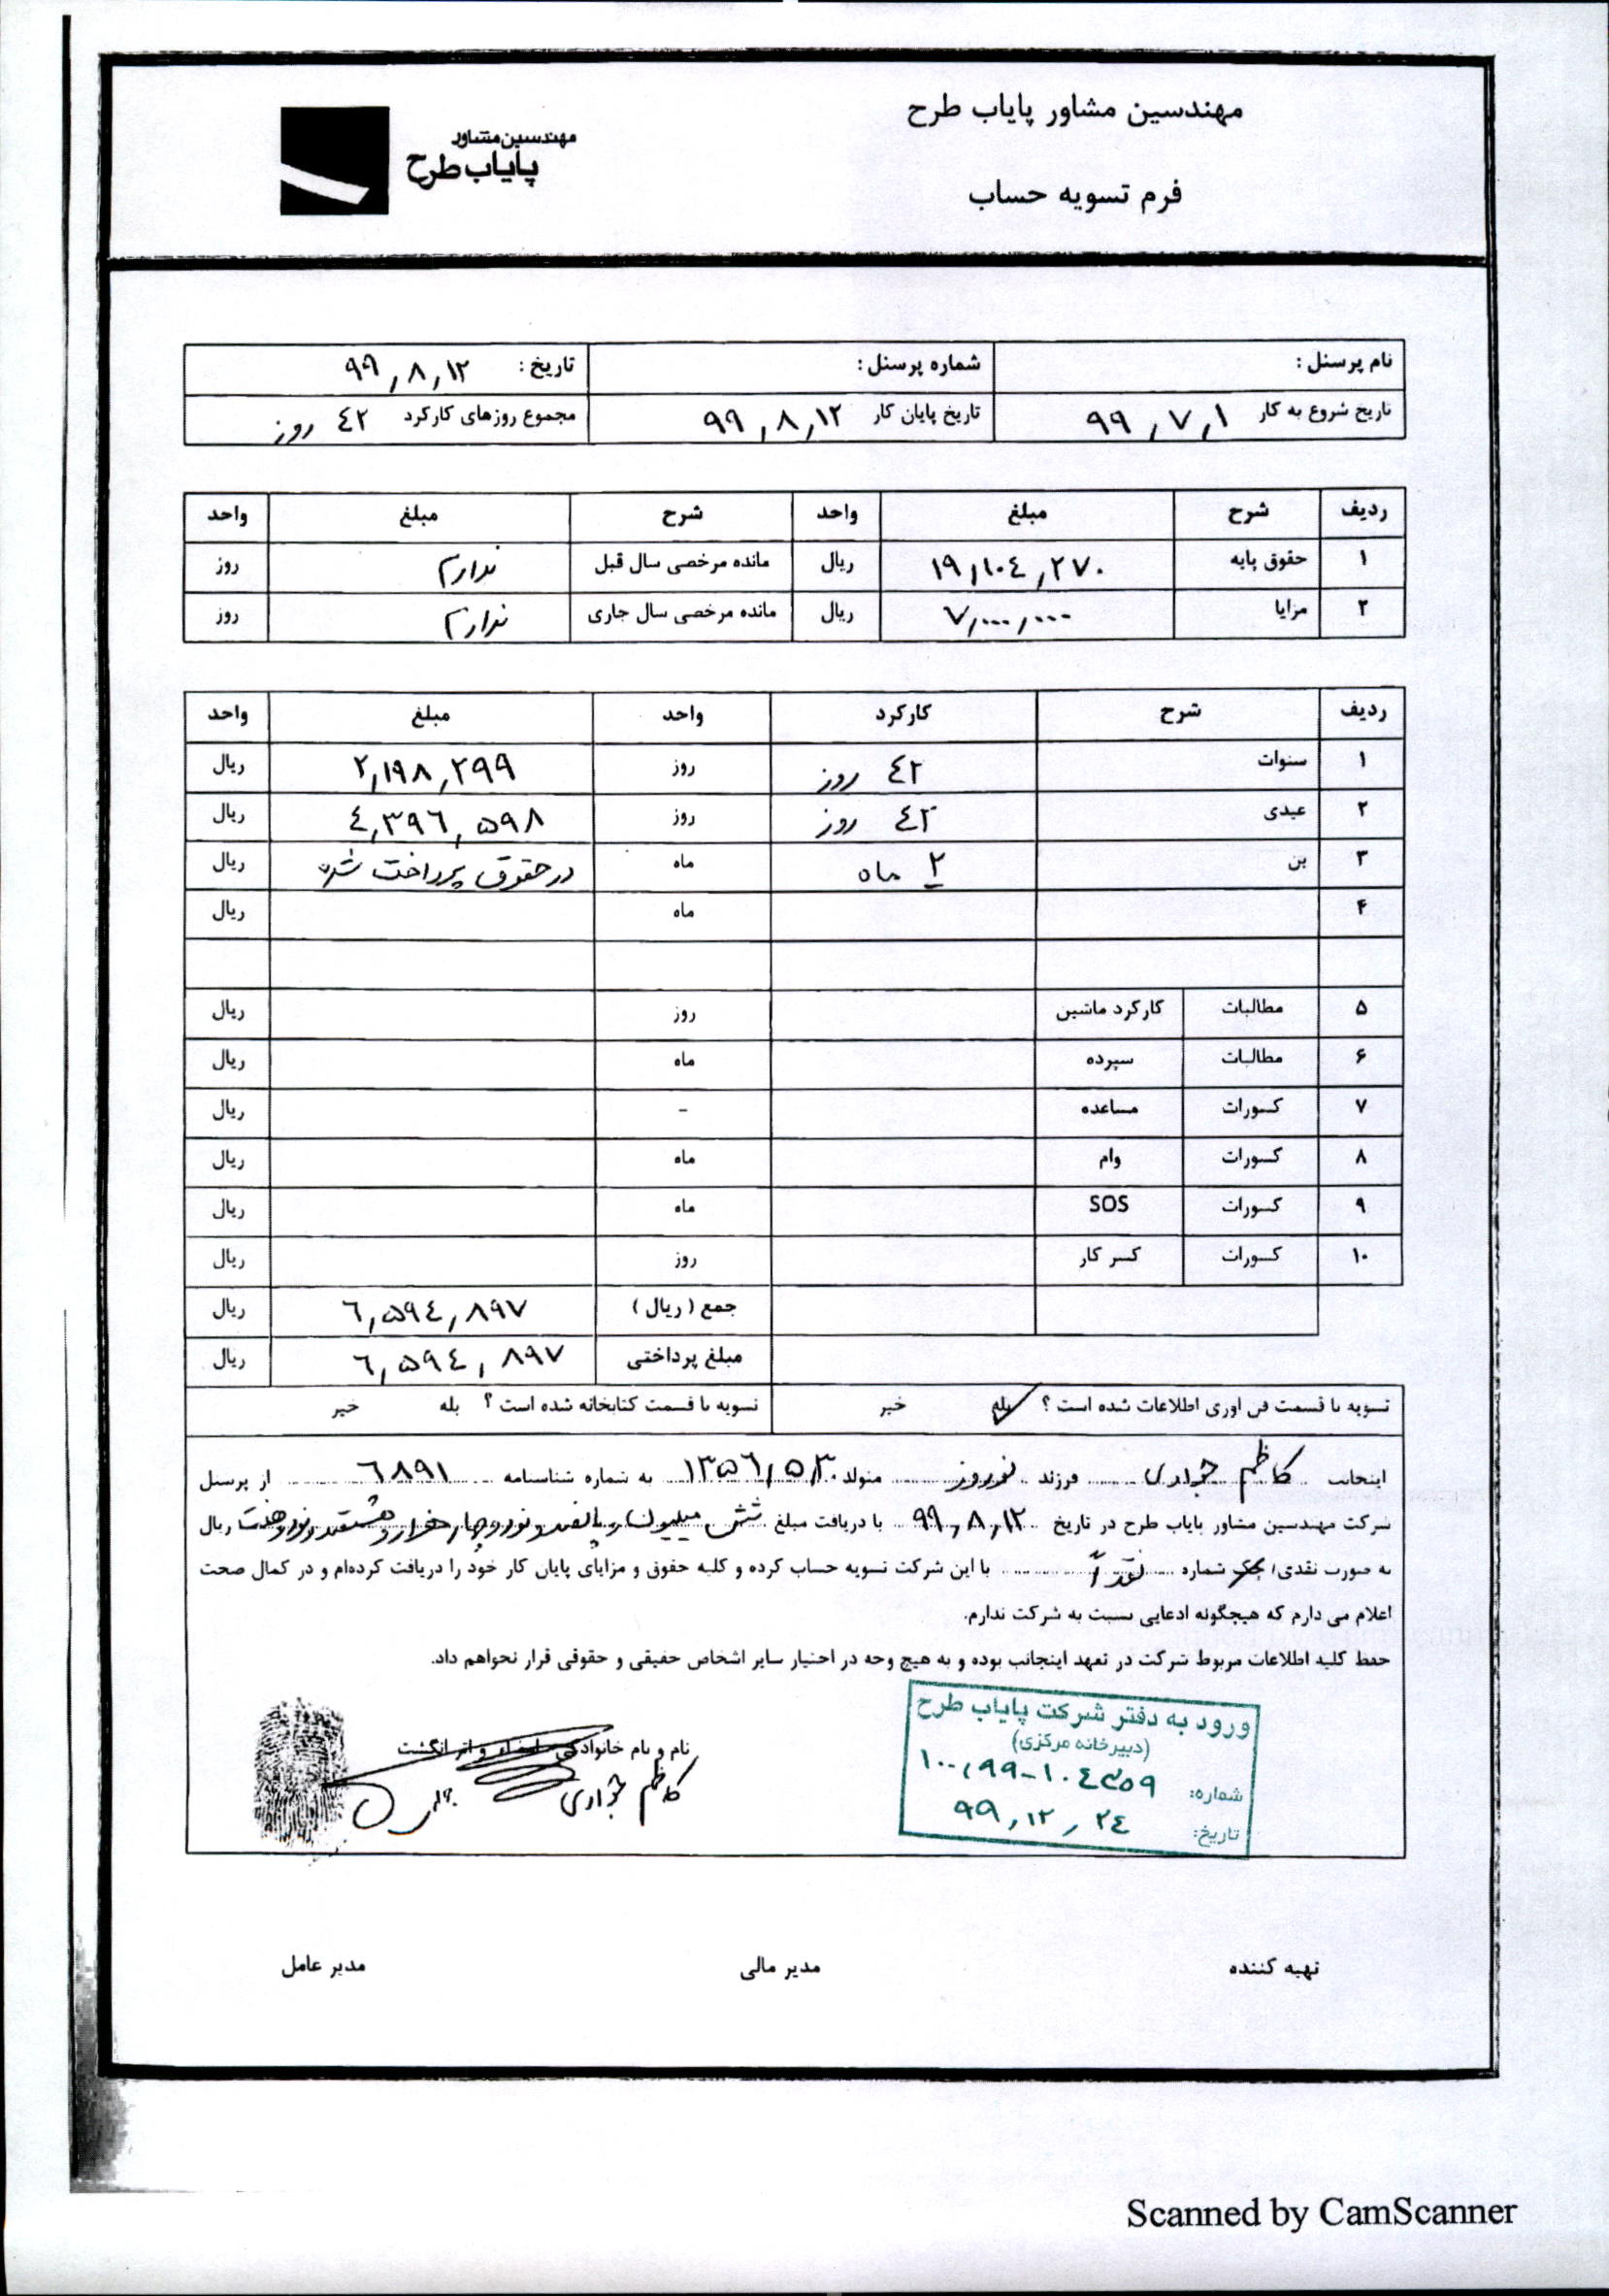 مهندسین مشاور پایاب طرح
مهندسین مشاور
پایاب طرح
فرم تسویه حساب
نام پرسنل : شماره پرسنل : تاریخ : ۹۹,۸,۱۲
تاریخ شروع به کار ۹۹,۷,۱ تاریخ پایان کار ۹۹,۸,۱۲ مجموع روزهای کارکرد ٤٢ روز
ردیف شرح مبلغ واحد شرح مبلغ واحد
۱ حقوق پایه ۱۹,۱۰٤,۲۷۰ ریال مانده مرخصی سال قبل ندارم روز
۲ مزایا ۷,۰۰۰,۰۰۰ ریال مانده مرخصی سال جاری ندارم روز
ردیف شرح کارکرد واحد مبلغ واحد
۱ سنوات ٤٢ روز روز ۲,۱۹۸,۲۹۹ ریال
۲ عیدی ٤٢ روز روز ٤,۳۹٦,۵۹۸ ریال
۳ بن ۲ ماه ماه در حقوق پرداخت شده ریال
۴ ماه ریال
۵ مطالبات کارکرد ماشین روز ریال
۶ مطالبات سپرده ماه ریال
۷ کسورات مساعده - ریال
۸ کسورات وام ماه ریال
۹ کسورات SOS ماه ریال
۱۰ کسورات کسر کار روز ریال
جمع ( ریال ) ٦,۵۹٤,۸۹۷ ریال
مبلغ پرداختی ٦,۵۹٤,۸۹۷ ریال
تسویه با قسمت فن اوری اطلاعات شده است ؟ بله خیر تسویه با قسمت کتابخانه شده است ؟ بله خیر
اینجانب کاظم فرزند نوروز متولد ۱۳۵٦,۵,۳۰ به شماره شناسنامه ٦۸۹۱ از پرسنل
شرکت مهندسین مشاور پایاب طرح در تاریخ ۹۹,۸,۱۲ با دریافت مبلغ شش میلیون و پانصد و نود و چهار هزار و هشتصد و نود و هفت ریال
به صورت نقدی/ چک شماره نقداً با این شرکت تسویه حساب کرده و کلیه حقوق و مزایای پایان کار خود را دریافت کرده‌ام و در کمال صحت
اعلام می دارم که هیچگونه ادعایی نسبت به شرکت ندارم.
حفظ کلیه اطلاعات مربوط شرکت در تعهد اینجانب بوده و به هیچ وجه در اختیار سایر اشخاص حقیقی و حقوقی قرار نخواهم داد.
ورود به دفتر شرکت پایاب طرح
(دبیرخانه مرکزی)
شماره: ۱۰۰,۹۹-۱۰٤۳۵۹
تاریخ: ۹۹,۱۲,۲٤
نام و نام خانوادگی امضاء و اثر انگشت
کاظم
تهیه کننده مدیر مالی مدیر عامل
Scanned by CamScanner